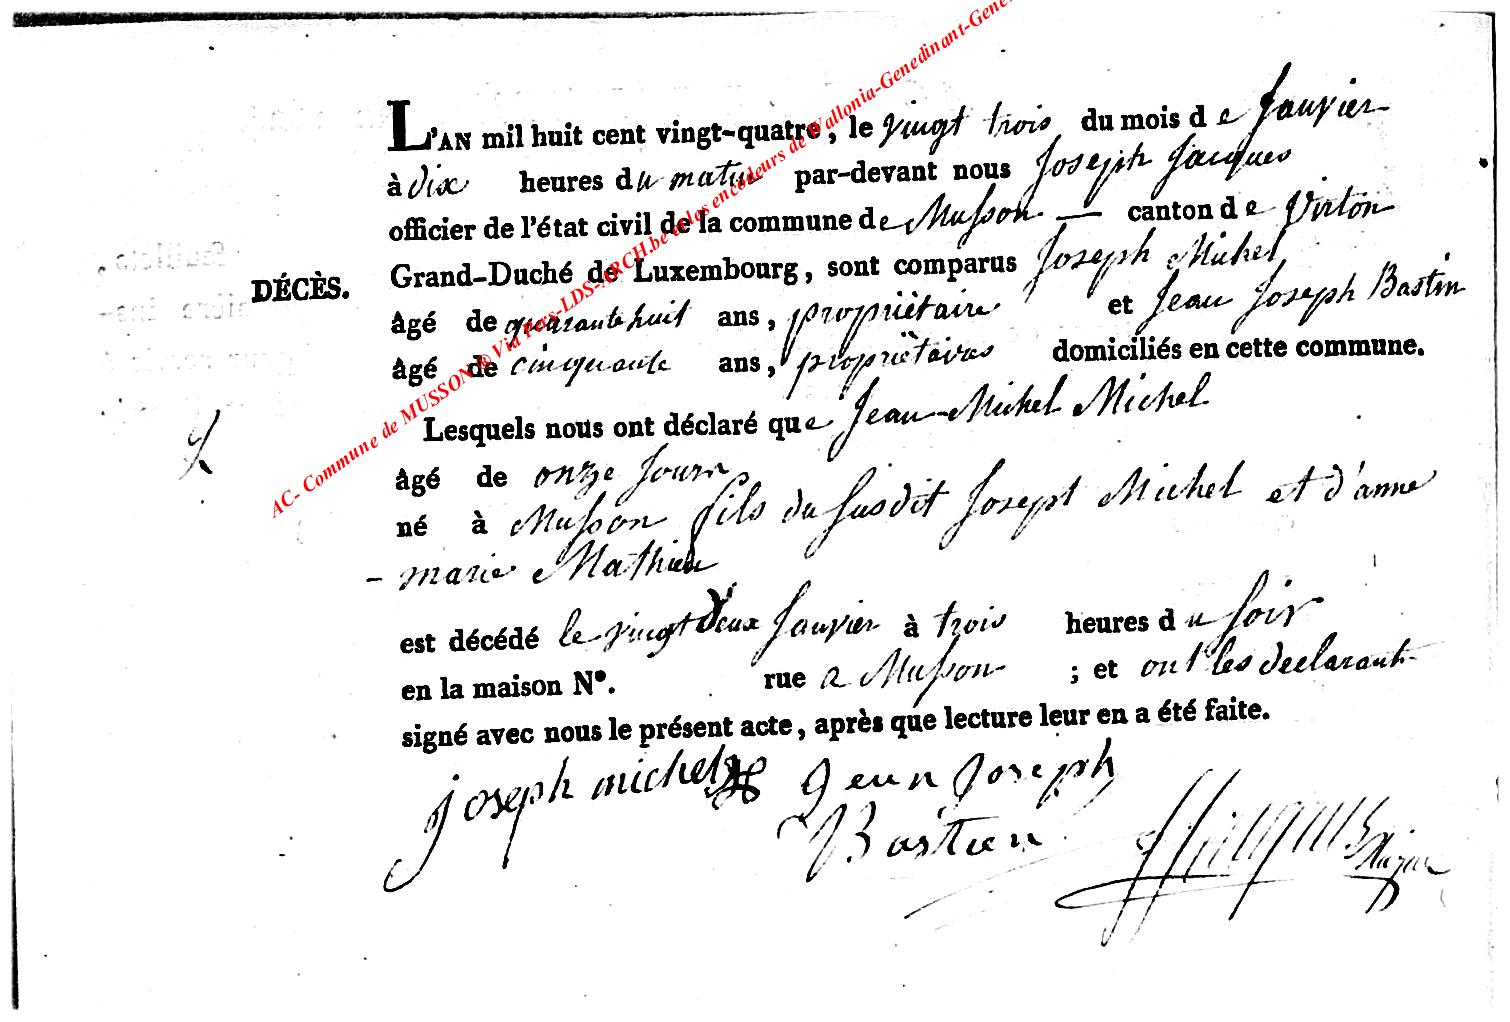 L'AN mil huit cent vingt-quatre, le vingt trois du mois de Janvier
à dix heures du matin par-devant nous Joseph Jacques
officier de l'état civil de la commune de Musson — canton de Virton
Grand-Duché de Luxembourg, sont comparus Joseph Michel
DÉCÈS.
âgé de quarante huit ans, propriètaire et Jean Joseph Bastin
âgé de cinquante ans, propriètaires domiciliés en cette commune.
Lesquels nous ont déclaré que Jean-Michel Michel
âgé de onze Jours
né à Musson fils du susdit Joseph Michel et d'anne
- marie Mathieu
est décédé le vingt deux Janvier à trois heures du soir
en la maison N°. rue a Musson ; et ont les declarant
signé avec nous le présent acte, après que lecture leur en a été faite.
joseph michel Jean Joseph
Bastien
JJacques
AC- Commune de MUSSON ® Via Pers-LDS-ARCH.be et les encodeurs de Wallonia-Genedinant-Gene